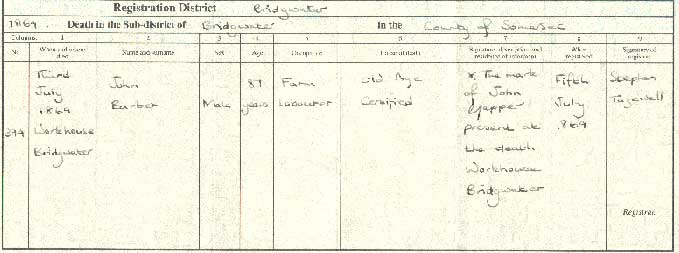 Registration District Bridgwater
1869. Death in the Sub-district of Bridgwater in the County of Somerset
Columns: 1 2 3 4 5 6 7 8 9
No. When and where died Name and surname Sex Age Occupation Cause of death Signature, description and residence of informant When registered Signature of registrar
394
Third
July
1869
Workhouse
Bridgwater
John
Barber
Male
87
years
Farm
Labourer
Old Age
Certified
X. The mark
of John
present at
the death
Workhouse
Bridgwater
Fifth
July
1869
Stephen
Registrar